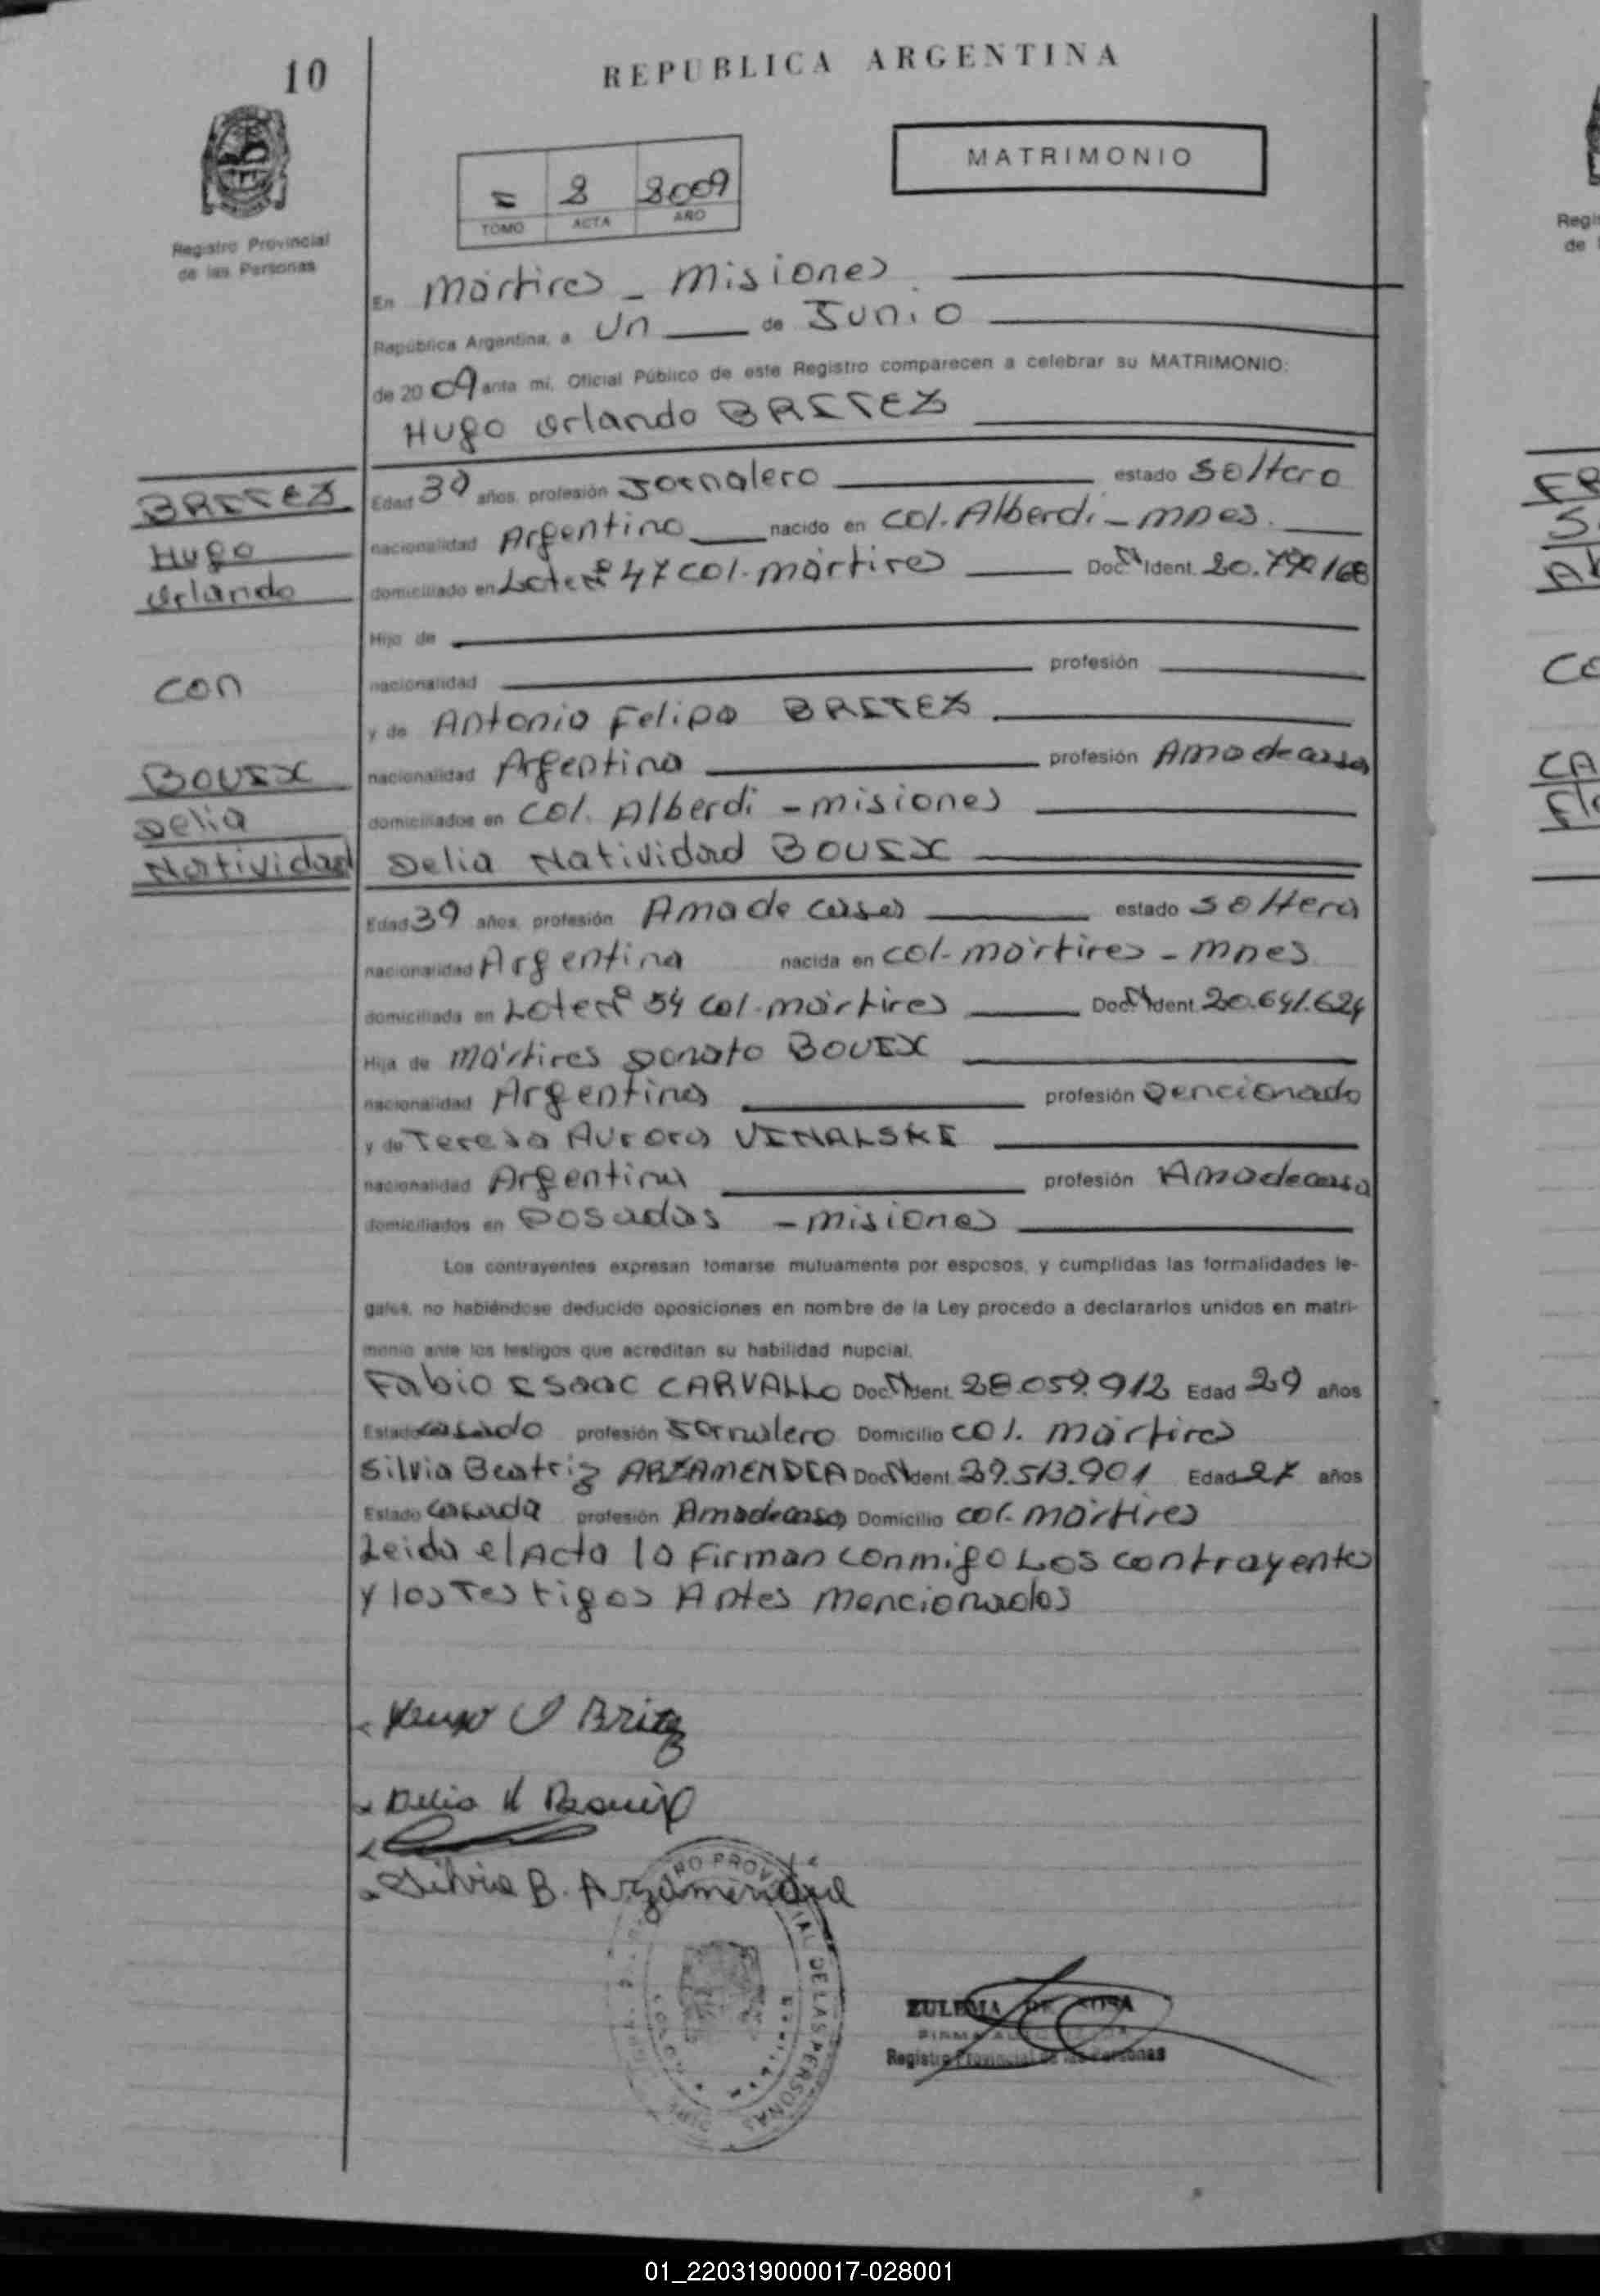 10
REPUBLICA ARGENTINA
MATRIMONIO
= 8 2009
TOMO ACTA AÑO
Registro Provincial
de las Personas
En Mártires - Misiones
República Argentina, a Un de Junio
de 2009 ante mi, Oficial Público de este Registro comparecen a celebrar su MATRIMONIO:
Hugo Orlando BRITEZ
BRITEZ
Hugo
Orlando
con
BOUIX
Delia
Natividad
Edad 39 años, profesión Jornalero estado Soltero
nacionalidad Argentino nacido en Col. Alberdi - Mnes.
domiciliado en Lote Nº 47 Col. Mártires Doc. N Ident.
Hijo de
nacionalidad profesión
y de Antonio Felipa BRITEZ
nacionalidad Argentina profesión Ama de casa
domiciliados en Col. Alberdi - Misiones
Delia Natividad BOUIX
Edad 39 años, profesión Ama de casa estado Soltera
nacionalidad Argentina nacida en Col. Mártires - Mnes
domiciliada en Lote Nº 54 Col. Mártires Doc. N Ident. 20.641.624
Hija de Mártires Donato BOUIX
nacionalidad Argentino profesión Pencionado
y de Teresa Aurora VINALSKI
nacionalidad Argentina profesión Ama de casa
domiciliados en Posadas - Misiones
Los contrayentes expresan tomarse mutuamente por esposos, y cumplidas las formalidades le-
gales, no habiéndose deducido oposiciones en nombre de la Ley procedo a declararlos unidos en matri-
monio ante los testigos que acreditan su habilidad nupcial.
Fabio Isaac CARVALLO Doc. N Ident. 28.059.912 Edad 29 años
Estado casado profesión Jornalero Domicilio Col. Mártires
Silvia Beatriz ARZAMENDIA Doc. N Ident. 29.513.901 Edad 27 años
Estado Casada profesión Ama de casa Domicilio Col. Mártires
Leida el Acta la Firman conmigo Los contrayentes
y los Testigos Antes Mencionados
Hugo O Britez
Delia N Bouix
Silvia B. Arzamendia
REGISTRO PROVINCIAL DE LAS PERSONAS
ZULEMA DE SOSA
FIRMA AUTORIZADA
Registro Provincial de las Personas
01_220319000017-028001